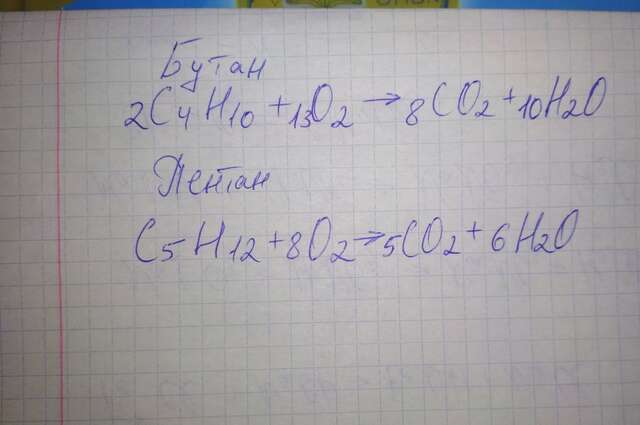 Бутан
2C4H10 + 13O2 → 8CO2 + 10H2O
Пентан
C5H12 + 8O2 → 5CO2 + 6H2O